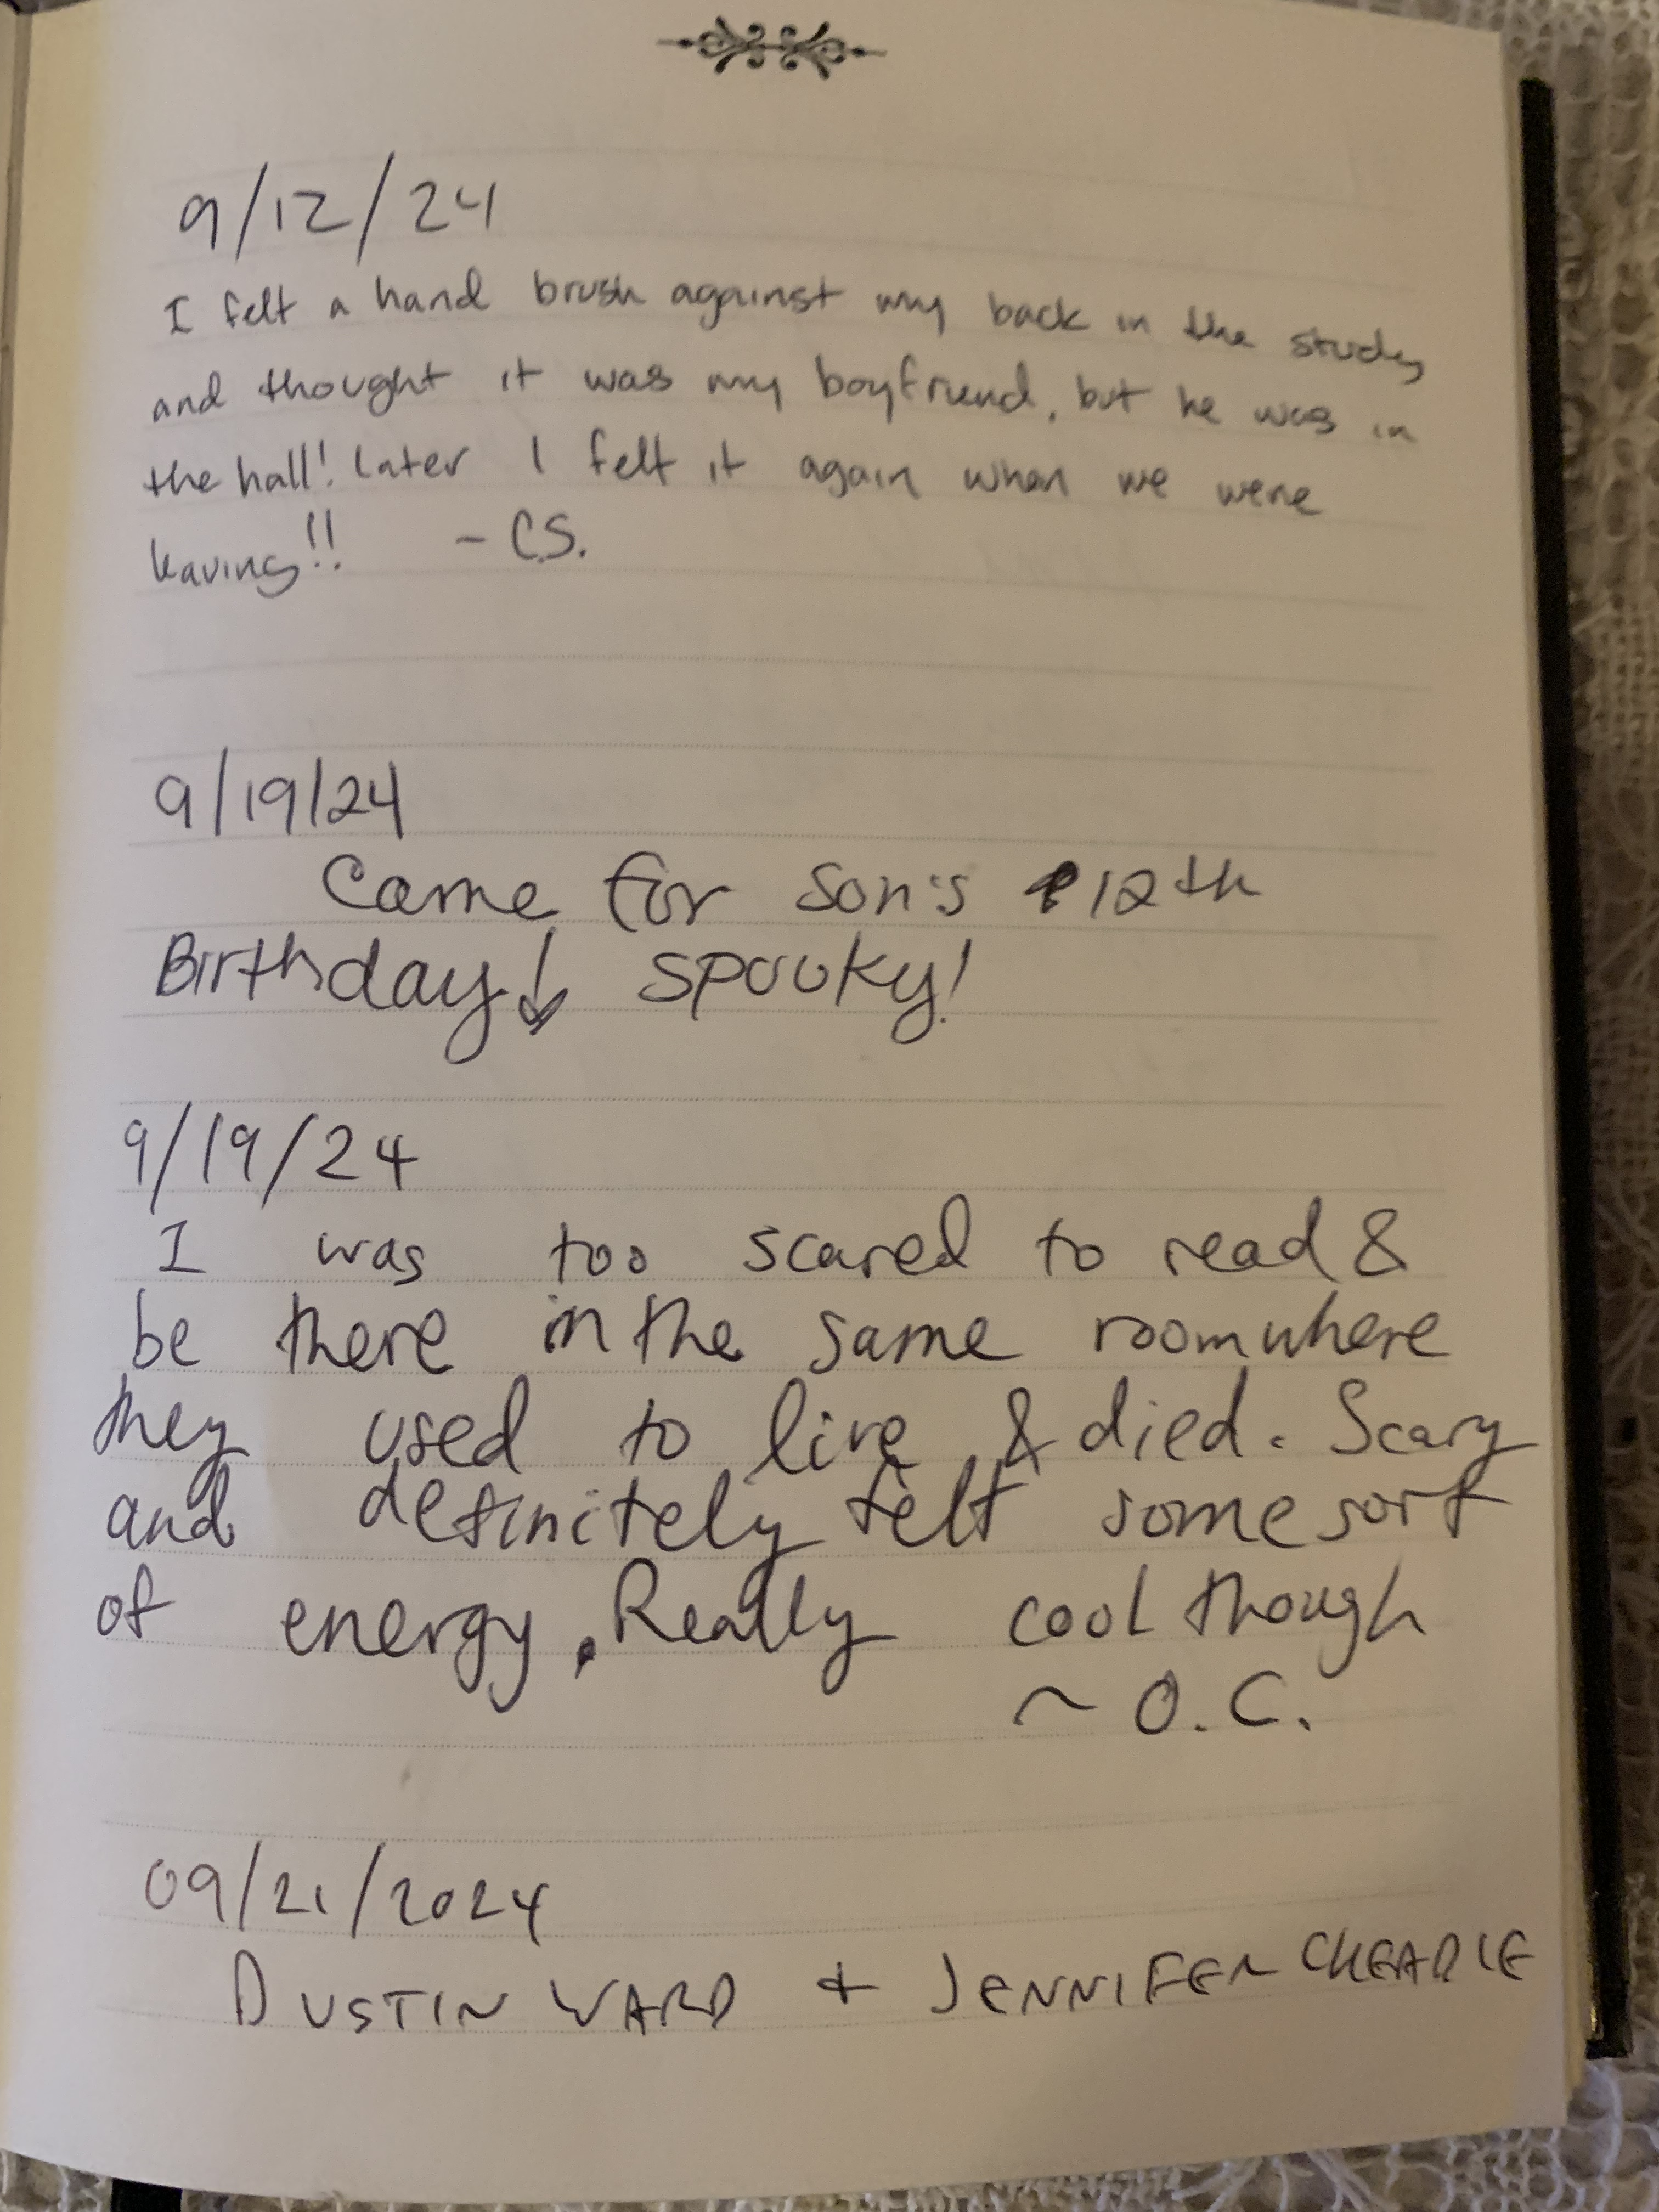 9/12/24
I felt a hand brush against my back in the study
and thought it was my boyfriend, but he was in
the hall! Later I felt it again when we were
leaving!! - C.S.
9/19/24
Came for son's 12th
Birthday! Spooky!
9/19/24
I was too scared to read &
be there in the same room where
they used to live & died. Scary
and definitely felt some sort
of energy. Really cool though
~ O.C.
09/21/2024
DUSTIN WARD + JENNIFER CHEADLE